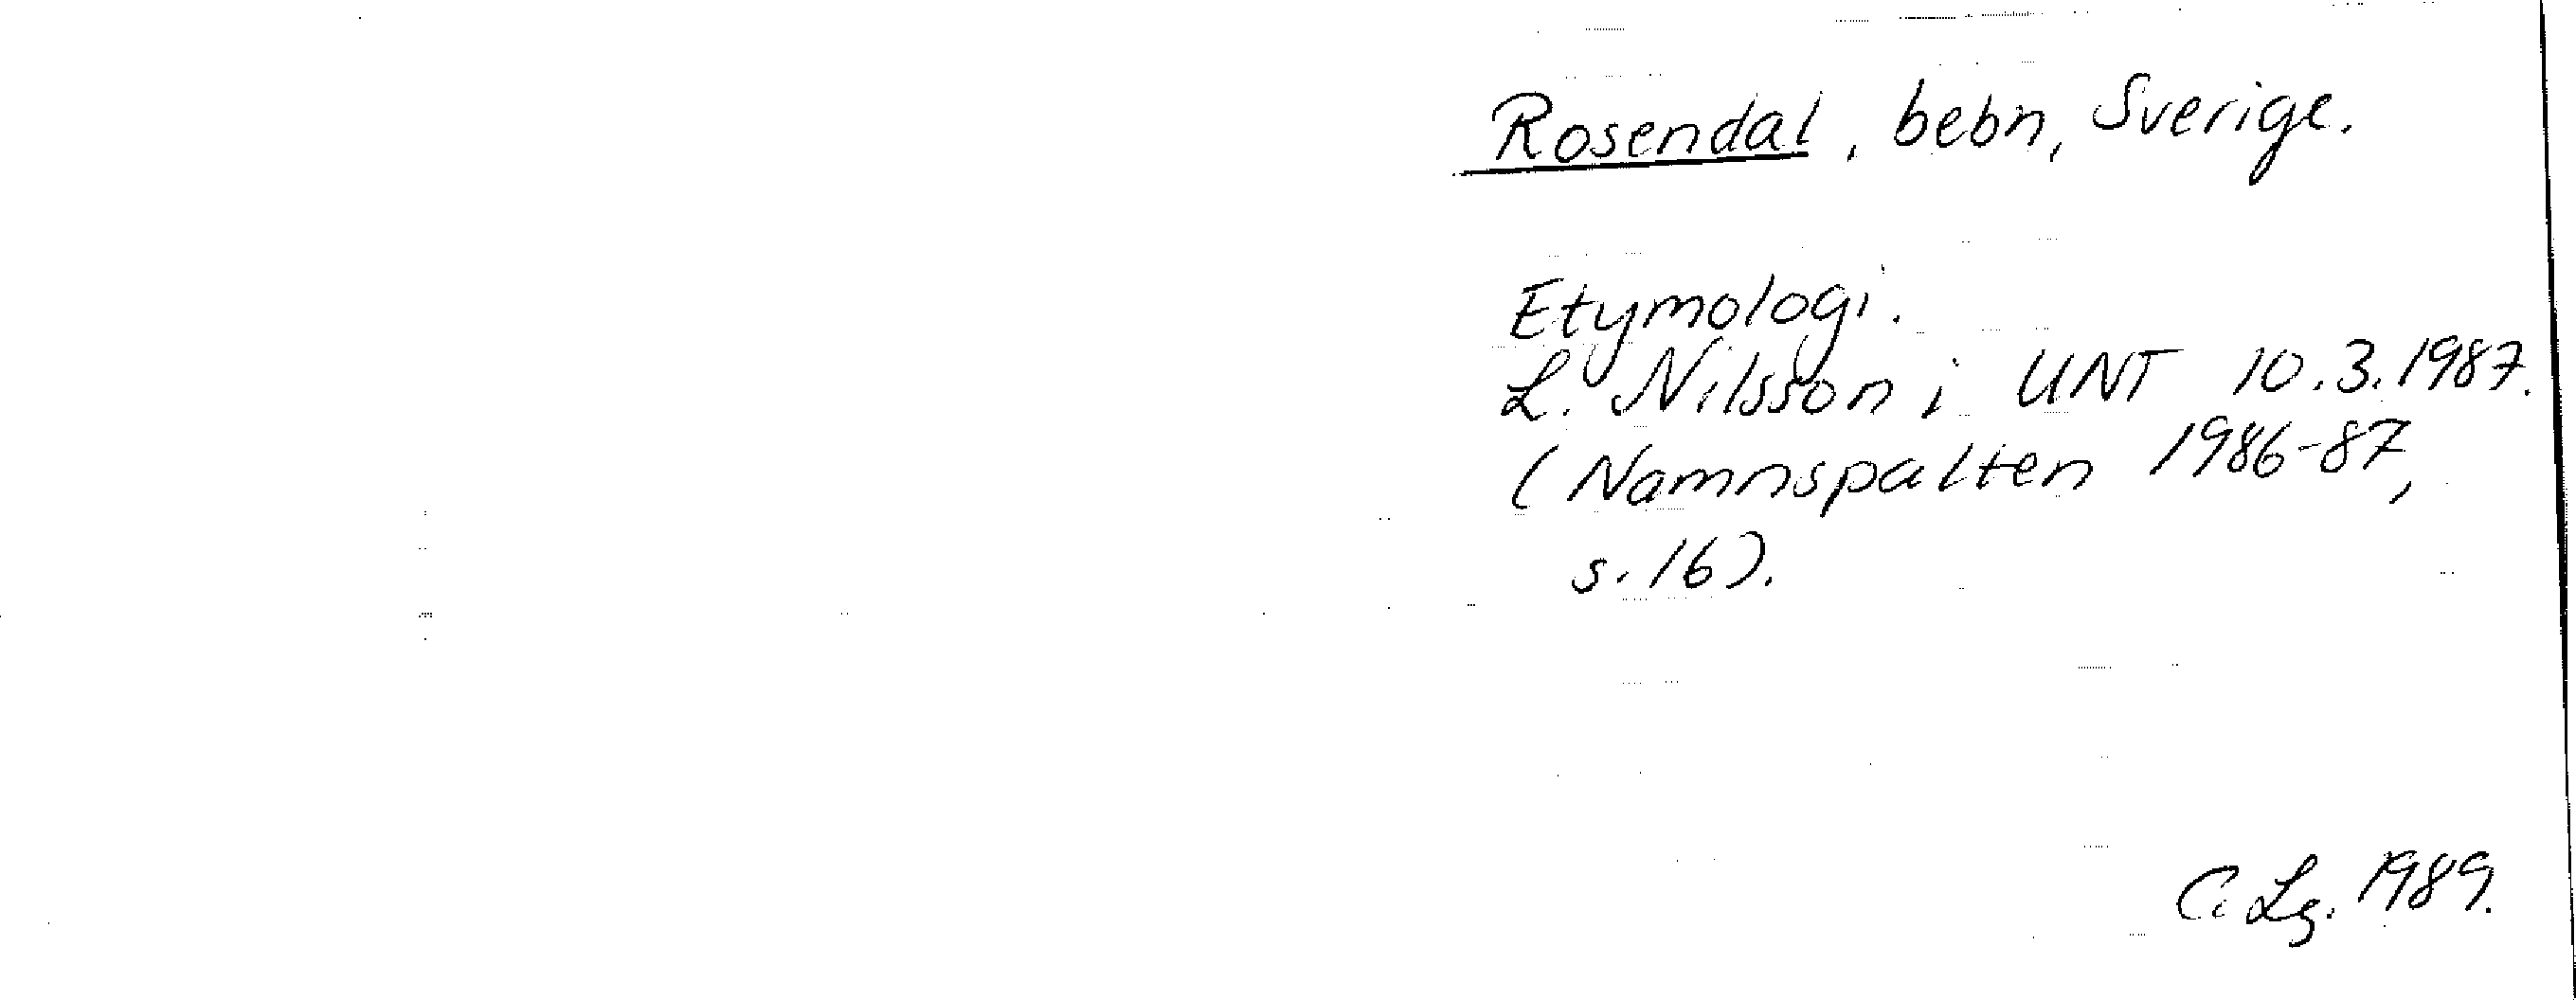 Rosendal, bebn, Sverige.
Etymologi.
L. Nilsson i UNT 10.3.1987.
(Namnspalten 1986-87,
s. 16).
C. Lg. 1989.